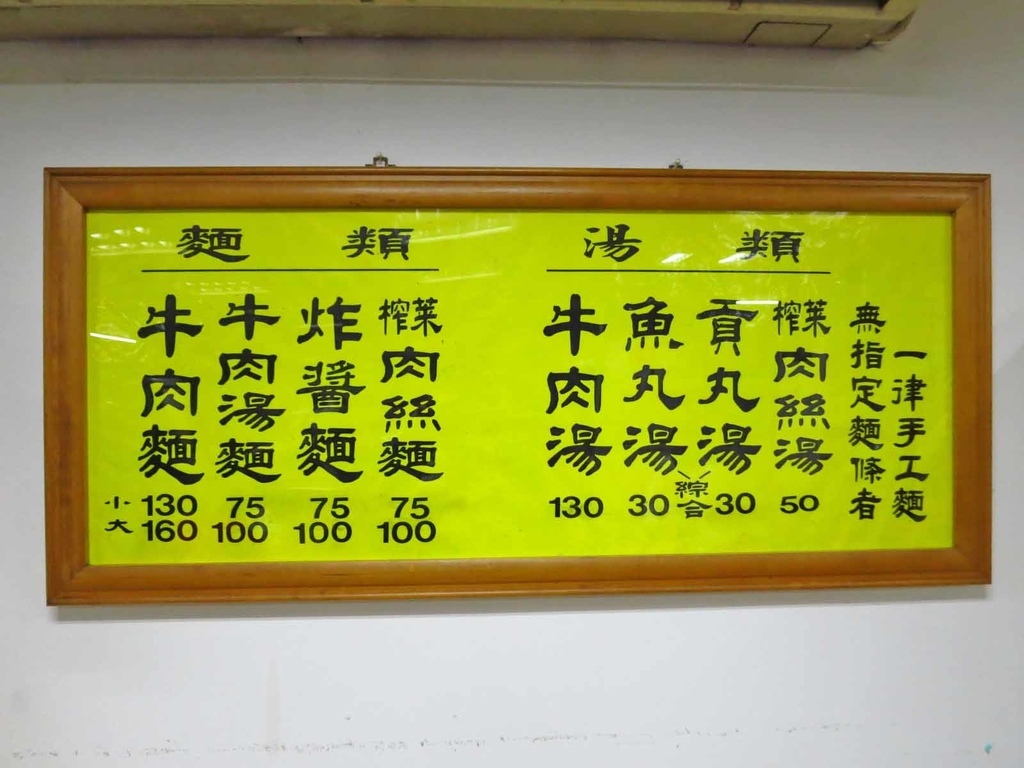 麵類
牛肉麵
小 130
大 160
牛肉湯麵
75
100
炸醬麵
75
100
榨菜肉絲麵
75
100
湯類
牛肉湯
130
魚丸湯
30
綜合
貢丸湯
30
榨菜肉絲湯
50
無指定麵條者
一律手工麵